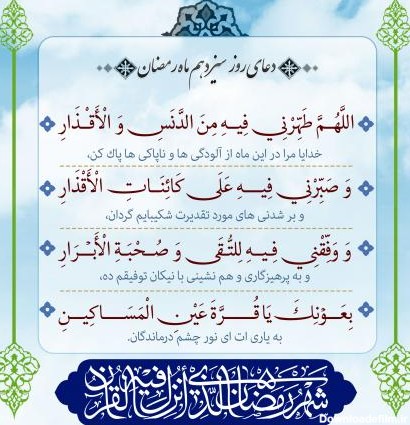 دعای روز سیزدهم ماه رمضان
اللَّهُمَّ طَهِّرْنِي فِيهِ مِنَ الدَّنَسِ وَ الْأَقْذَارِ
خدایا مرا در این ماه از آلودگی ها و ناپاکی ها پاک کن،
وَ صَبِّرْنِي فِيهِ عَلَى كَائِنَاتِ الْأَقْدَارِ
و بر شدنی های مورد تقدیرت شکیبایم گردان،
وَ وَفِّقْنِي فِيهِ لِلتُّقَى وَ صُحْبَةِ الْأَبْرَارِ
و به پرهیزگاری و هم نشینی با نیکان توفیقم ده،
بِعَوْنِكَ يَا قُرَّةَ عَيْنِ الْمَسَاكِينِ
به یاری ات ای نور چشم درماندگان.
شهر رمضان الذي أنزل فيه القرآن